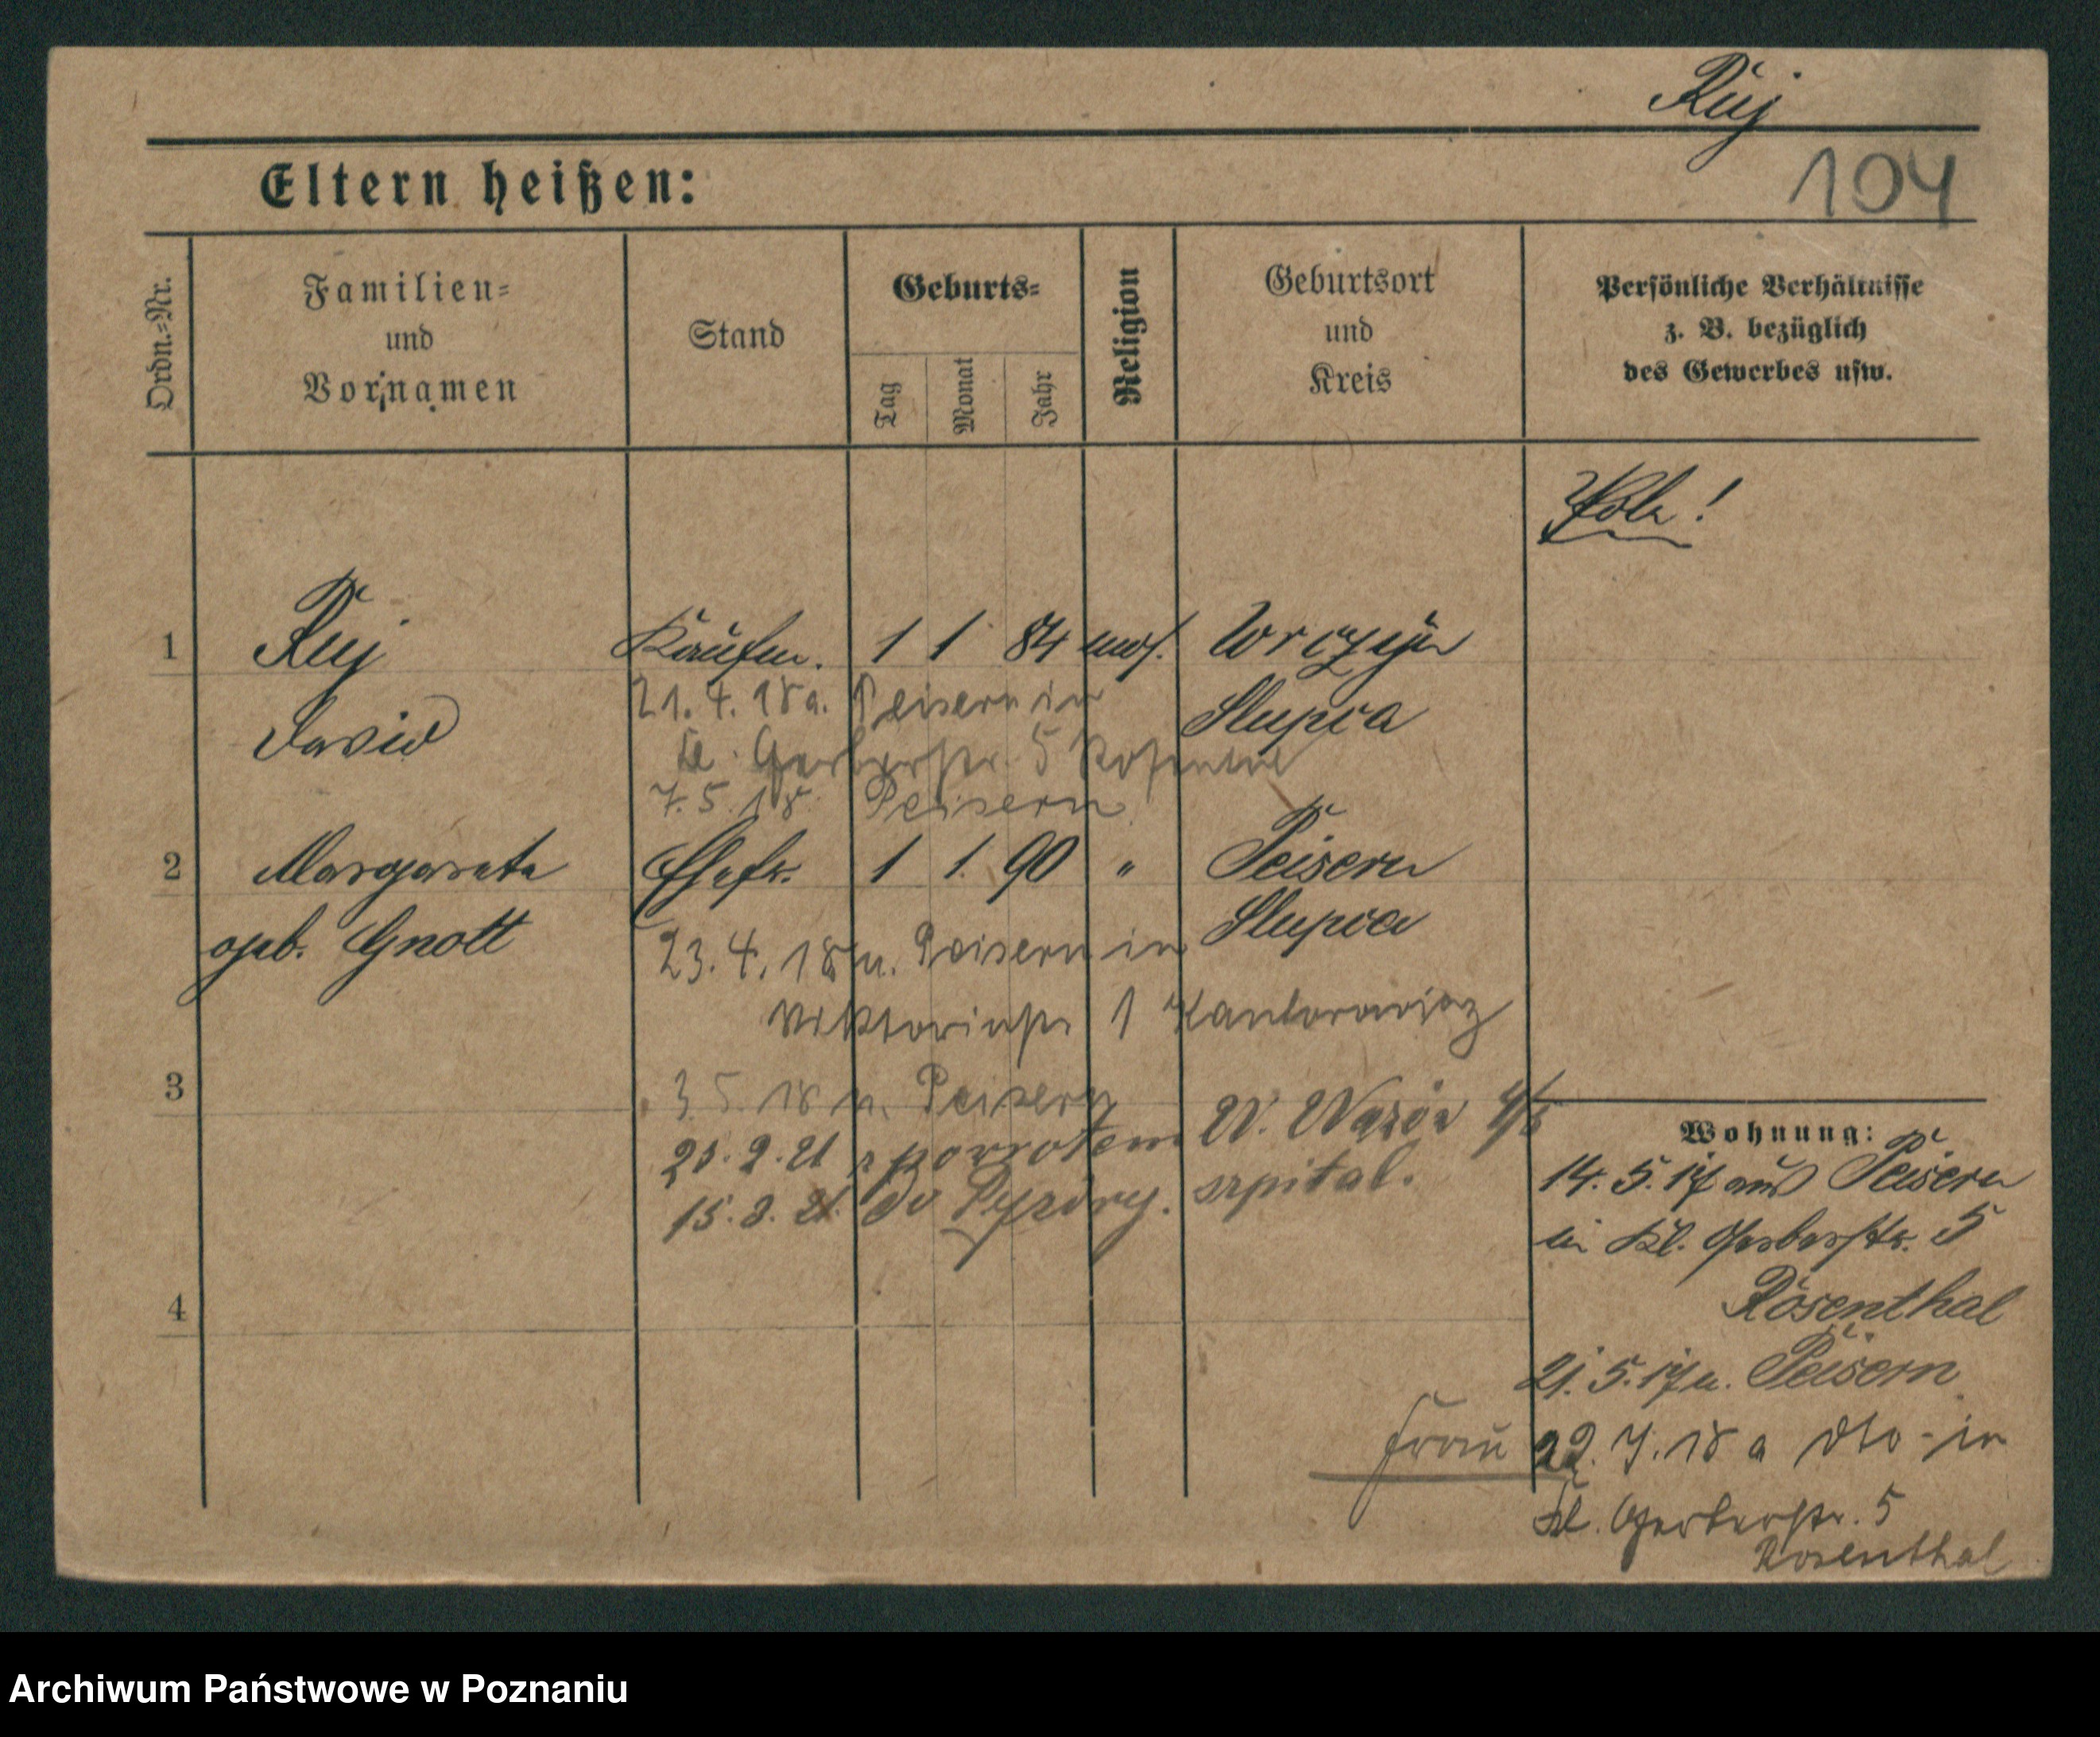 Ruj
104
Eltern heißen:
Ordn.=Nr.
Familien=
und
Vornamen
Stand
Geburts=
Tag
Monat
Jahr
Religion
Geburtsort
und
Kreis
Persönliche Verhältnisse
z. B. bezüglich
des Gewerbes usw.
1
Ruj
Kaufm. 1 1 84 mos.
David
21.4.18 a. Peisern in
Kl. Gerberstr. 5 Rosenthal
7.5.18. Peisern
Slupca
2
Margarete
Ehefr. 1 1. 90 "
Peisern
geb. Gnott
Slupca
23.4.18 n. Peisern in
Viktoriastr 1 Kantorowicz
3
3.5.18 n. Peisern
z powrotem W.
15.3.21. do Pyzdry. szpital.
4
Wohnung:
14.5.17 aus Peisern
in Kl. Gerberstr. 5
Rosenthal
21.5.17 n. Peisern
Frau 22.7.18 a dto in
Kl. Gerberstr. 5
Rosenthal
Archiwum Państwowe w Poznaniu